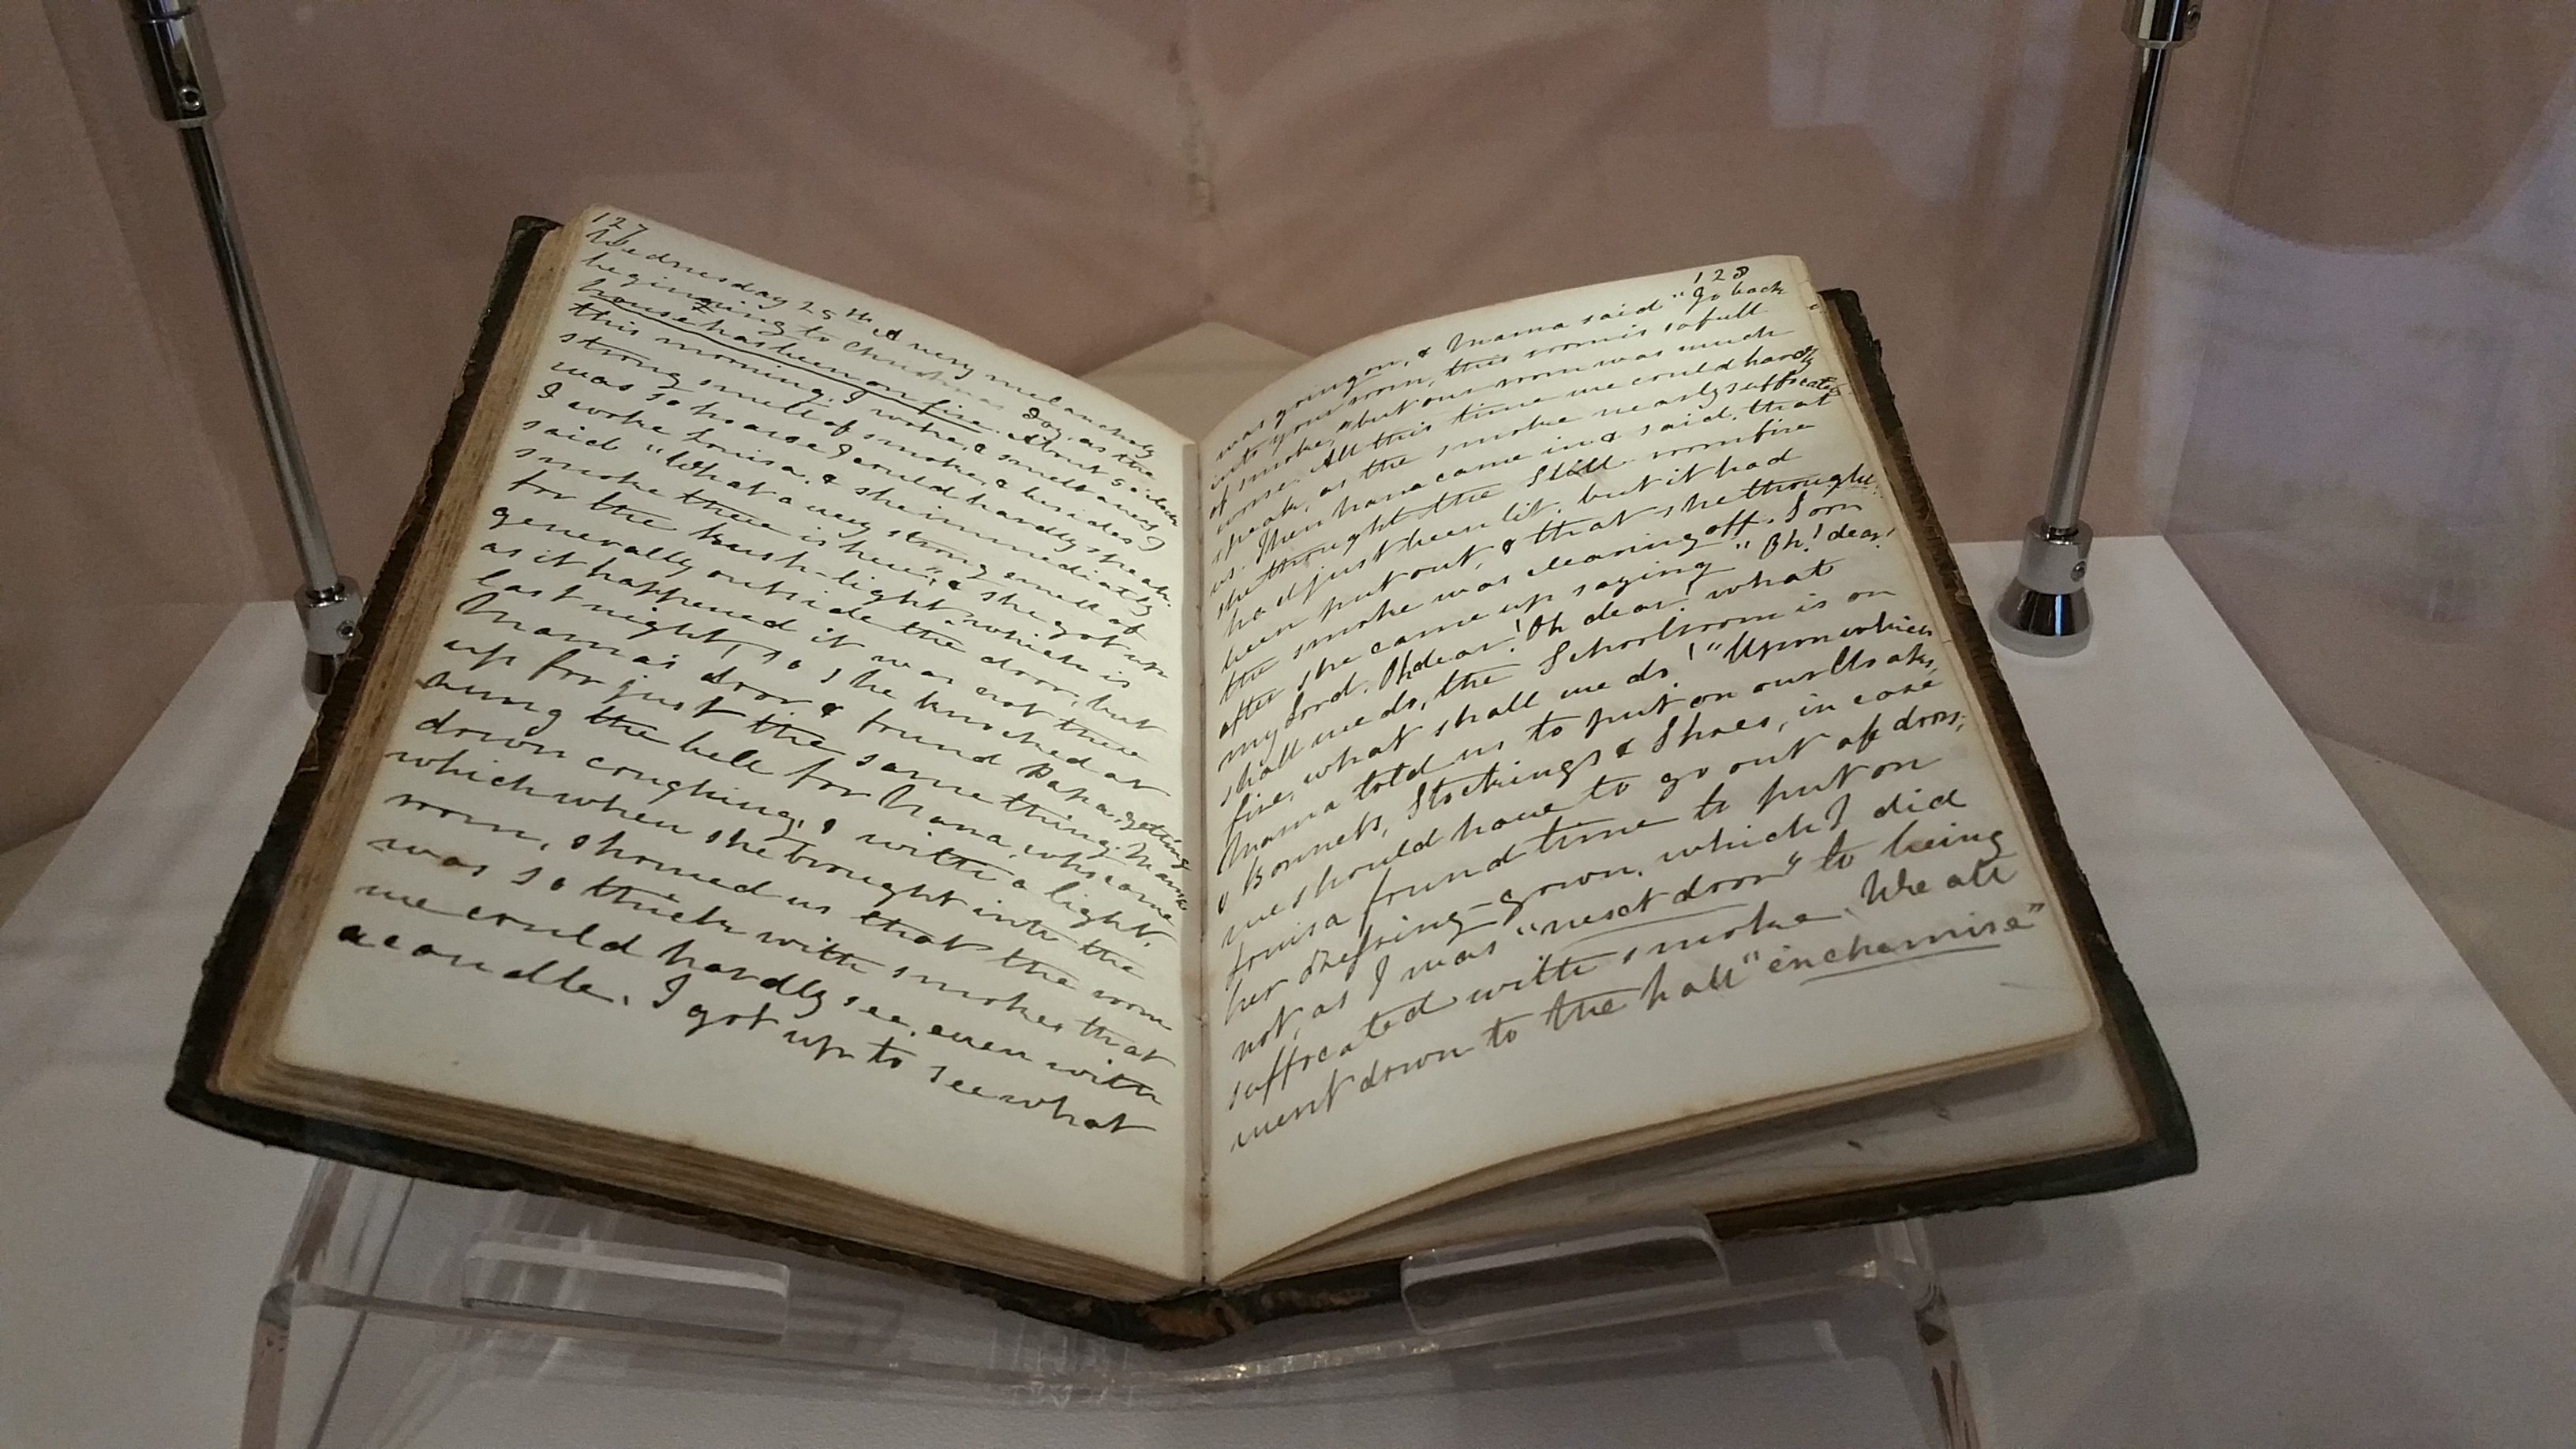 127
Wednesday 25th A very melancholy
beginning to Christmas Day, as the
house has been on fire. About 5 o'clock
this morning, I woke, & smelt a very
strong smell of smoke, & besides I
was so hoarse I could hardly speak.
I woke Louisa, & she immediately
said "What a very strong smell of
smoke there is here", & she got up
for the Rush-light which is
generally outside the door, but
as it happened it was not there
last night, so she knocked at
Mama's door & found Papa getting
up for just the same thing. Mama
rung the bell for Nana, who came
down coughing, & with a light,
which when she brought into the
room, showed us that the room
was so thick with smoke, that
we could hardly see, even with
a candle. I got up to see what
128
was going on, & Mama said "Go back
into your room, this room is so full
of smoke, but our room was much
worse. All this time we could hardly
speak, as the smoke nearly suffocated
us. Then Nana came in & said, that
she thought the Still-room fire
had just been lit, but it had
been put out, & that she thought
the smoke was clearing off. Soon
after she came up saying "Oh! dear!
my Lord. Oh dear! Oh dear! what
shall we do, the Schoolroom is on
fire, what shall we do!" Upon which
Mama told us to put on our Cloaks,
& Bonnets, Stockings & Shoes, in case
we should have to go out of doors;
Louisa found time to put on
her dressing-gown, which I did
not, as I was "next door" to being
suffocated with smoke. We all
went down to the hall "en chemise"